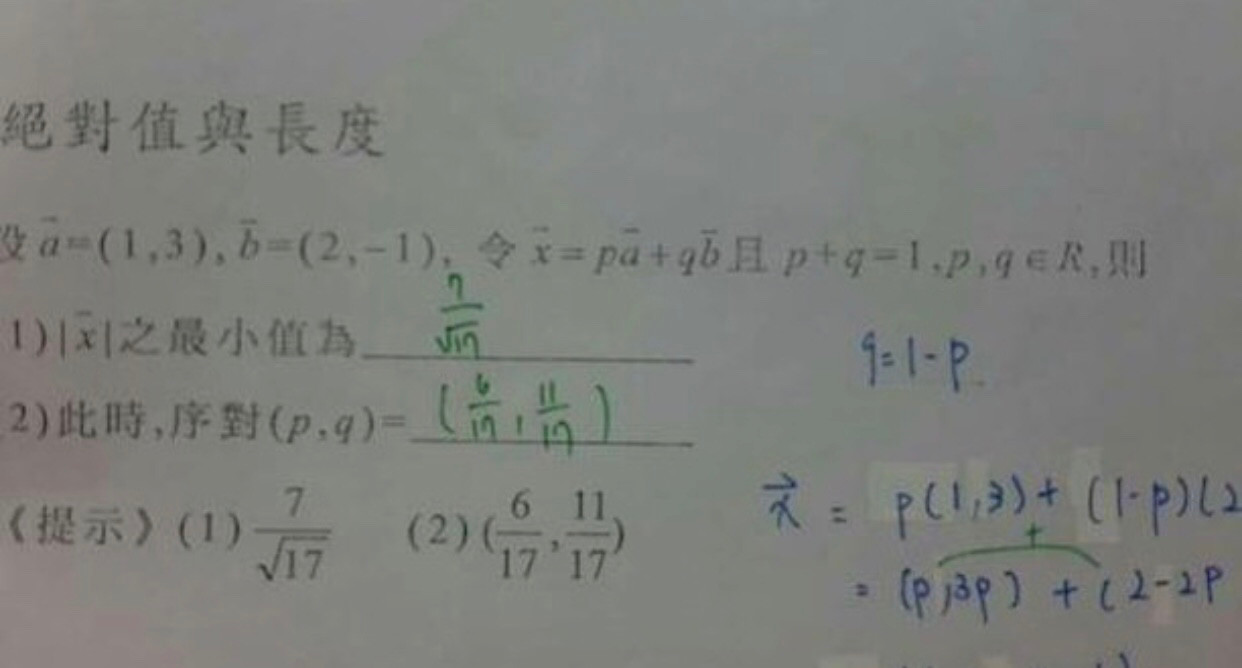 絕對值與長度
設 a⃗=(1,3), b⃗=(2,-1), 令 x⃗=pa⃗+qb⃗且 p+q=1,p,q∈R,則
1)|x⃗|之最小值為 7/√17
q=1-p
2)此時,序對(p,q)= (6/17, 11/17)
《提示》(1) 7/√17 (2)(6/17,11/17)
x⃗ = p(1,3)+(1-p)(2
= (p,3p) + (2-2p